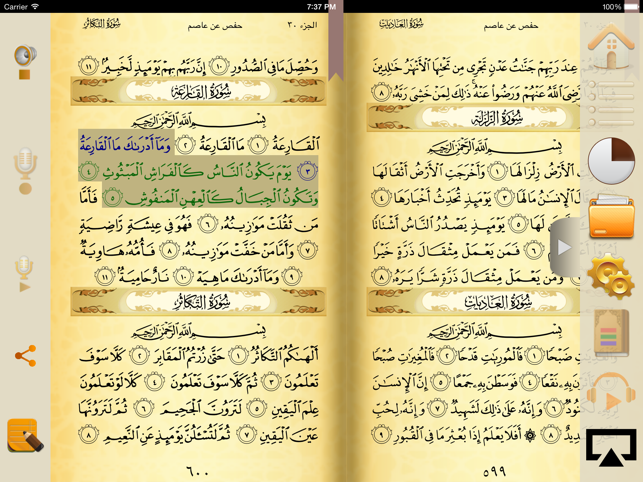 Carrier 7:37 PM 100%
سُورَةُ العَادِيَات حفص عن عاصم
عِندَ رَبِّهِمْ جَنَّٰتُ عَدْنٍ تَجْرِي مِن تَحْتِهَا ٱلْأَنْهَٰرُ خَٰلِدِينَ
ٱللَّهُ عَنْهُمْ وَرَضُوا۟ عَنْهُ ذَٰلِكَ لِمَنْ خَشِيَ رَبَّهُۥ ٨
سُورَةُ الزَّلْزَلَة
بِسْمِ ٱللَّهِ ٱلرَّحْمَٰنِ ٱلرَّحِيمِ
ٱلْأَرْضُ زِلْزَالَهَا ١ وَأَخْرَجَتِ ٱلْأَرْضُ أَثْقَالَهَا
ٱلْإِنسَٰنُ مَا لَهَا ٣ يَوْمَئِذٍ تُحَدِّثُ أَخْبَارَهَا ٤
لَهَا ٥ يَوْمَئِذٍ يَصْدُرُ ٱلنَّاسُ أَشْتَاتًا
٦ فَمَن يَعْمَلْ مِثْقَالَ ذَرَّةٍ خَيْرًا
وَمَن يَعْمَلْ مِثْقَالَ ذَرَّةٍ شَرًّا يَرَهُۥ ٨
سُورَةُ العَادِيَات
بِسْمِ ٱللَّهِ ٱلرَّحْمَٰنِ ٱلرَّحِيمِ
ضَبْحًا ١ فَٱلْمُورِيَٰتِ قَدْحًا ٢ فَٱلْمُغِيرَٰتِ صُبْحًا
بِهِۦ نَقْعًا ٤ فَوَسَطْنَ بِهِۦ جَمْعًا ٥ إِنَّ ٱلْإِنسَٰنَ
٦ وَإِنَّهُۥ عَلَىٰ ذَٰلِكَ لَشَهِيدٌ ٧ وَإِنَّهُۥ لِحُبِّ
٨ ۞ أَفَلَا يَعْلَمُ إِذَا بُعْثِرَ مَا فِي ٱلْقُبُورِ ٩
٥٩٩
الجزء ٣٠ حفص عن عاصم سُورَةُ التَّكَاثُر
وَحُصِّلَ مَا فِي ٱلصُّدُورِ ١٠ إِنَّ رَبَّهُم بِهِمْ يَوْمَئِذٍ لَّخَبِيرٌۢ ١١
سُورَةُ القَارِعَة
بِسْمِ ٱللَّهِ ٱلرَّحْمَٰنِ ٱلرَّحِيمِ
ٱلْقَارِعَةُ ١ مَا ٱلْقَارِعَةُ ٢ وَمَآ أَدْرَىٰكَ مَا ٱلْقَارِعَةُ
٣ يَوْمَ يَكُونُ ٱلنَّاسُ كَٱلْفَرَاشِ ٱلْمَبْثُوثِ ٤
وَتَكُونُ ٱلْجِبَالُ كَٱلْعِهْنِ ٱلْمَنفُوشِ ٥ فَأَمَّا
مَن ثَقُلَتْ مَوَٰزِينُهُۥ ٦ فَهُوَ فِي عِيشَةٍ رَّاضِيَةٍ
٧ وَأَمَّا مَنْ خَفَّتْ مَوَٰزِينُهُۥ ٨ فَأُمُّهُۥ هَاوِيَةٌ
٩ وَمَآ أَدْرَىٰكَ مَا هِيَهْ ١٠ نَارٌ حَامِيَةٌۢ ١١
سُورَةُ التَّكَاثُر
بِسْمِ ٱللَّهِ ٱلرَّحْمَٰنِ ٱلرَّحِيمِ
أَلْهَىٰكُمُ ٱلتَّكَاثُرُ ١ حَتَّىٰ زُرْتُمُ ٱلْمَقَابِرَ ٢ كَلَّا سَوْفَ
تَعْلَمُونَ ٣ ثُمَّ كَلَّا سَوْفَ تَعْلَمُونَ ٤ كَلَّا لَوْ تَعْلَمُونَ
عِلْمَ ٱلْيَقِينِ ٥ لَتَرَوُنَّ ٱلْجَحِيمَ ٦ ثُمَّ لَتَرَوُنَّهَا
عَيْنَ ٱلْيَقِينِ ٧ ثُمَّ لَتُسْـَٔلُنَّ يَوْمَئِذٍ عَنِ ٱلنَّعِيمِ ٨
٦٠٠